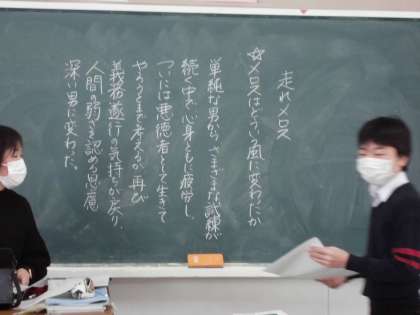 走れメロス
☆メロスはどういう風に変わったか
単純な男から、さまざまな試練が
続く中で、心身ともに疲労し、
ついには悪徳者として生きて
やろうとまで考えるが、再び
義務遂行の気持ちが戻り、
人間の弱さを認める思慮
深い男に変わった。